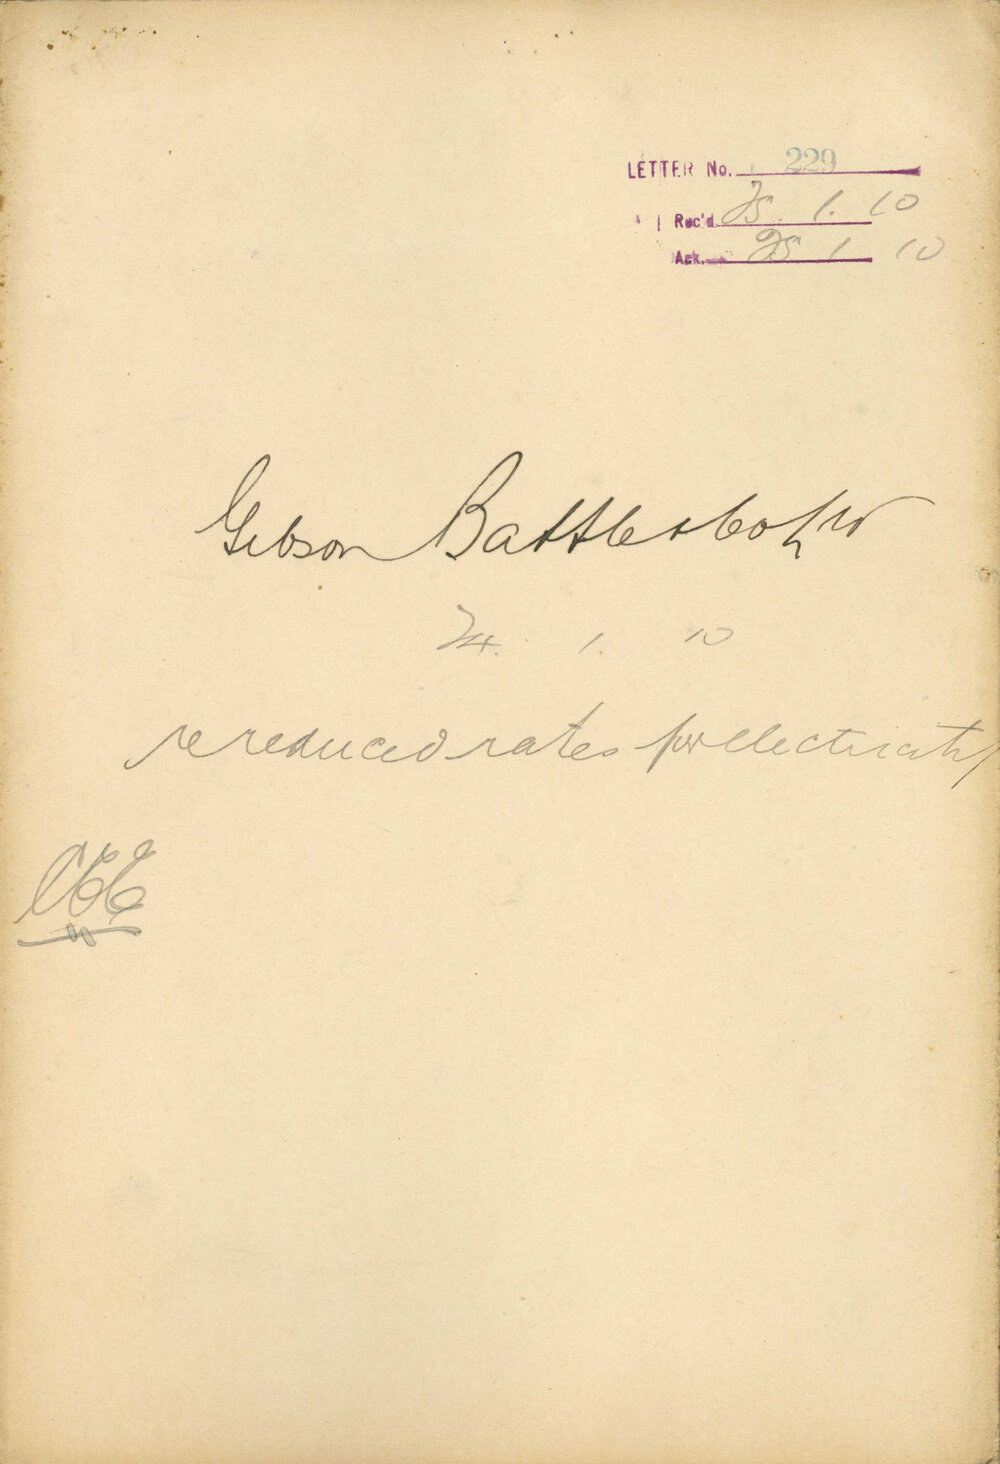 LETTER No. 229
Rec'd 25. 1. 10
Ack. 25 1 10
Gibson Battle & Co Ltd
24. 1. 10
re reduced rates for electricity